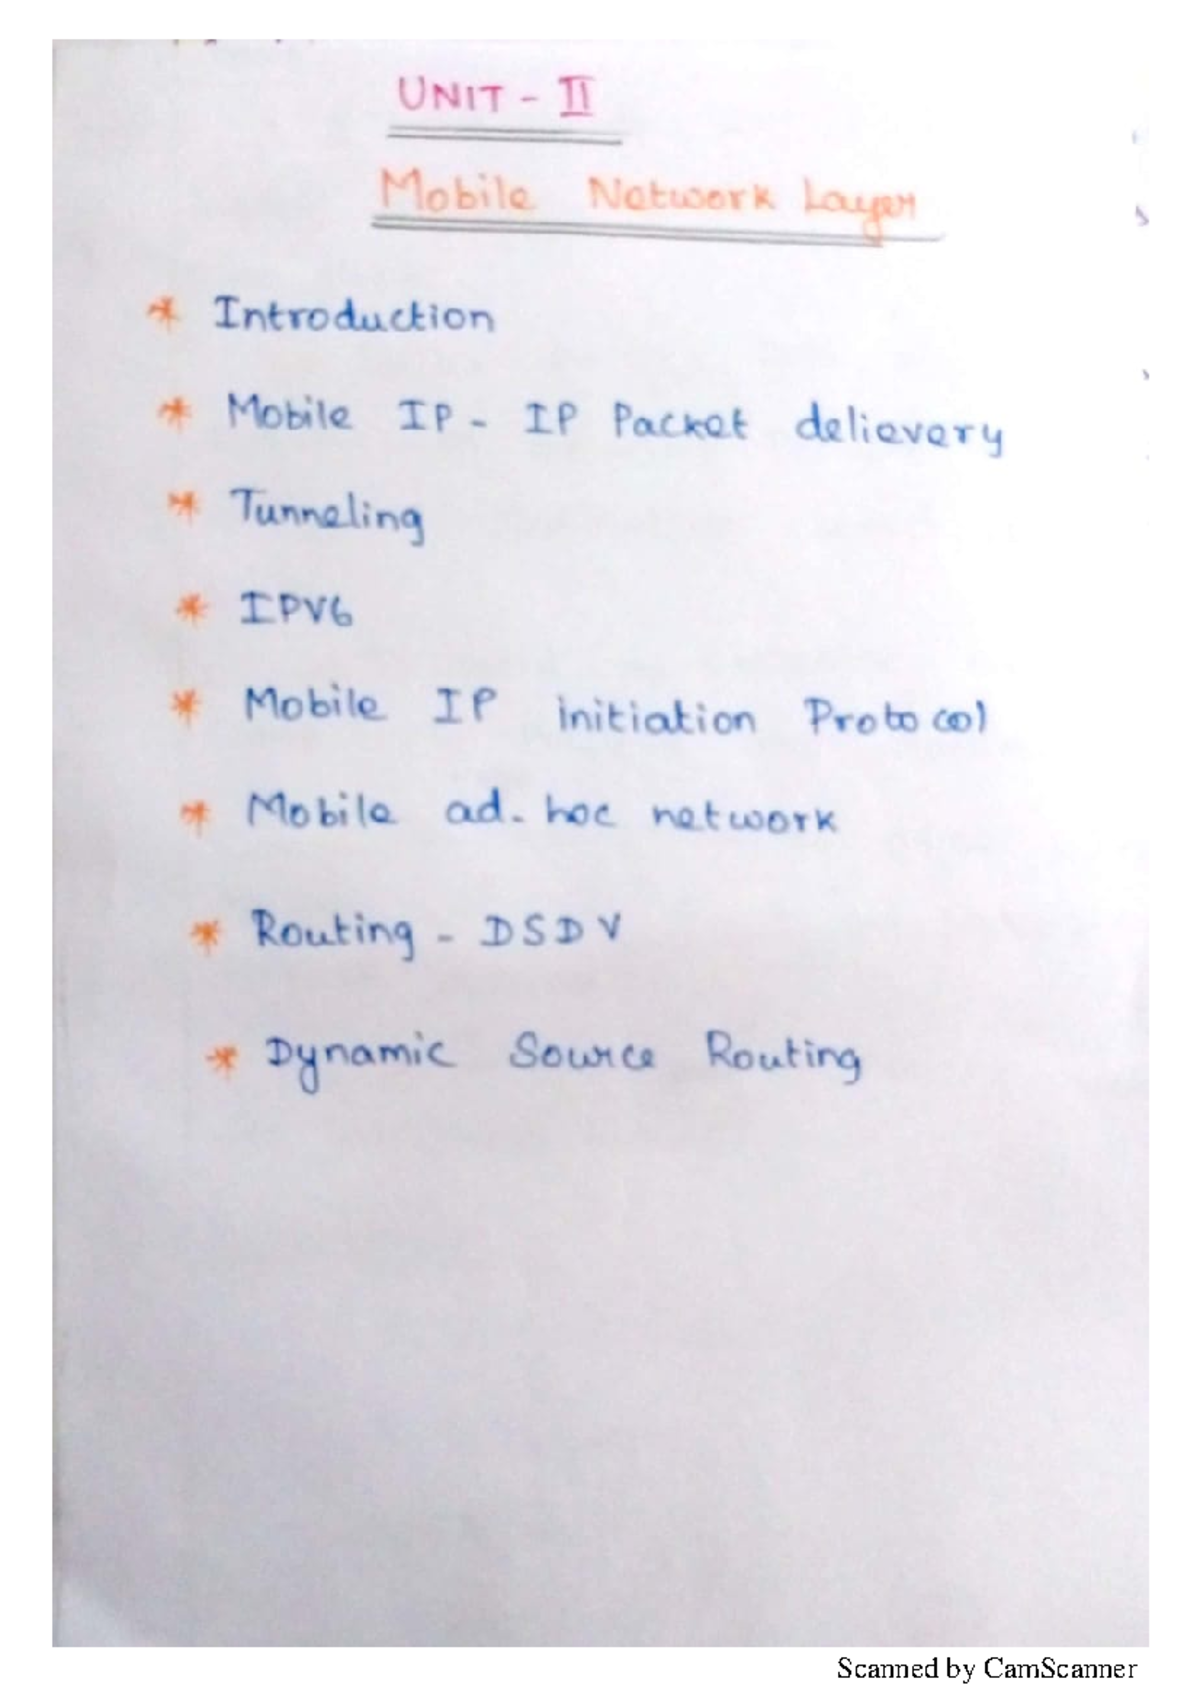 UNIT - II
Mobile Network Layer
* Introduction
* Mobile IP - IP Packet delievery
* Tunneling
* IPV6
* Mobile IP initiation Protocol
* Mobile ad-hoc network
* Routing - DSDV
* Dynamic Source Routing
Scanned by CamScanner